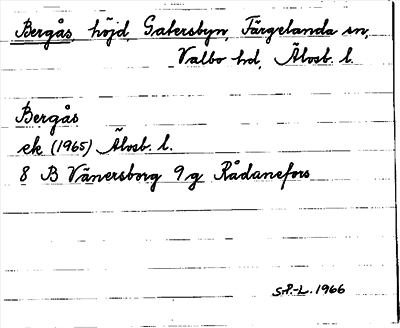 Bergås, höjd, Gatersbyn, Färgelanda sn,
Valbo hd, Älvsb. l.
Bergås
ek (1965) Älvsb. l.
8 B Vänersborg 9g Rådanefors
S.P.-L. 1966